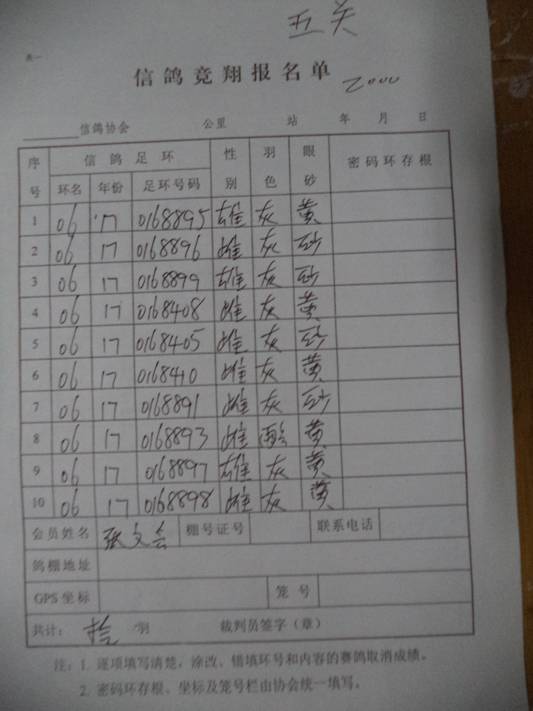 五关
表一
信鸽竞翔报名单 2000
信鸽协会 公里 站 年 月 日
序号 信鸽足环 性别 羽色 眼砂 密码环存根
环名 年份 足环号码
1 06 '17 0168895 雄 灰 黄
2 06 17 0168896 雌 灰 砂
3 06 17 0168899 雄 灰 砂
4 06 17 0168408 雌 灰 黄
5 06 17 0168405 雌 灰 砂
6 06 17 0168410 雌 灰 黄
7 06 17 0168891 雌 灰 砂
8 06 17 0168893 雌 黄
9 06 17 0168897 雄 灰 黄
10 06 17 0168898 雌 灰 黄
会员姓名 张文会 棚号证号 联系电话
鸽棚地址
GPS坐标 笼号
共计: 拾 羽 裁判员签字(章)
注:1. 逐项填写清楚,涂改、错填环号和内容的赛鸽取消成绩。
2. 密码环存根、坐标及笼号栏由协会统一填写。